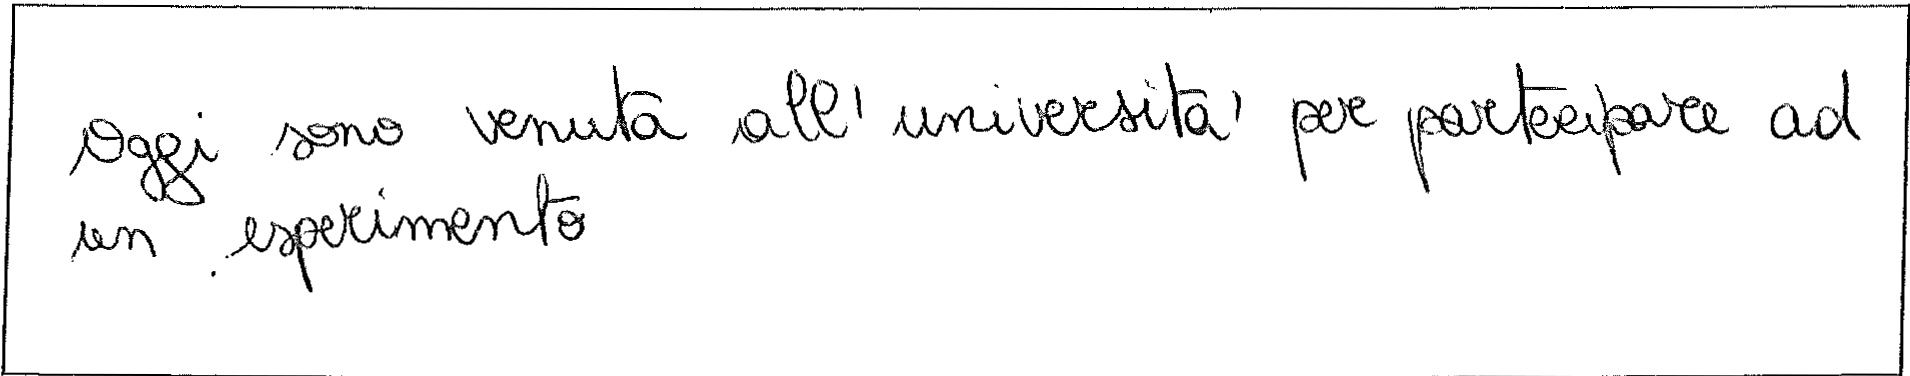 Oggi sono venuta all'università' per partecipare ad
un esperimento